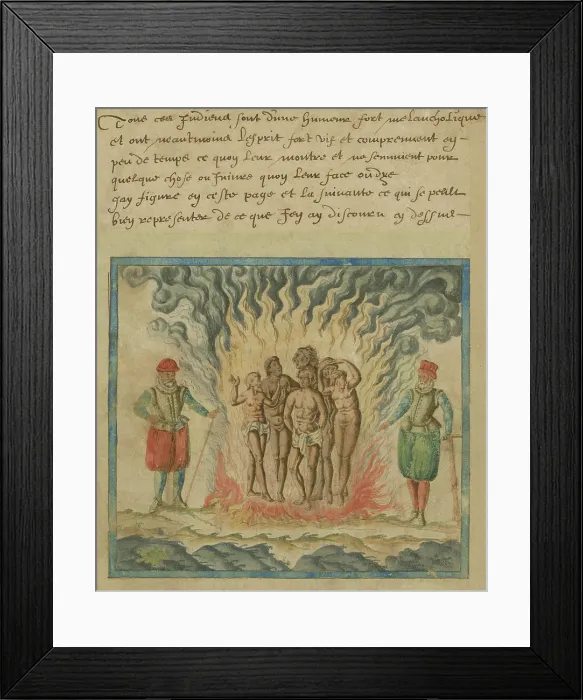 Tous ces Indiens sont d'une humeur fort melancholique
et ont neantmoins l'esprit fort vif et comprennent en
peu de temps ce quon leur montre et ne sennuient pour
quelque chose ou iniure quon leur face ou dye
Jay figure en ceste page et la suivante ce qui se peult
bien representer de ce que Jey ay discouru cy dessus